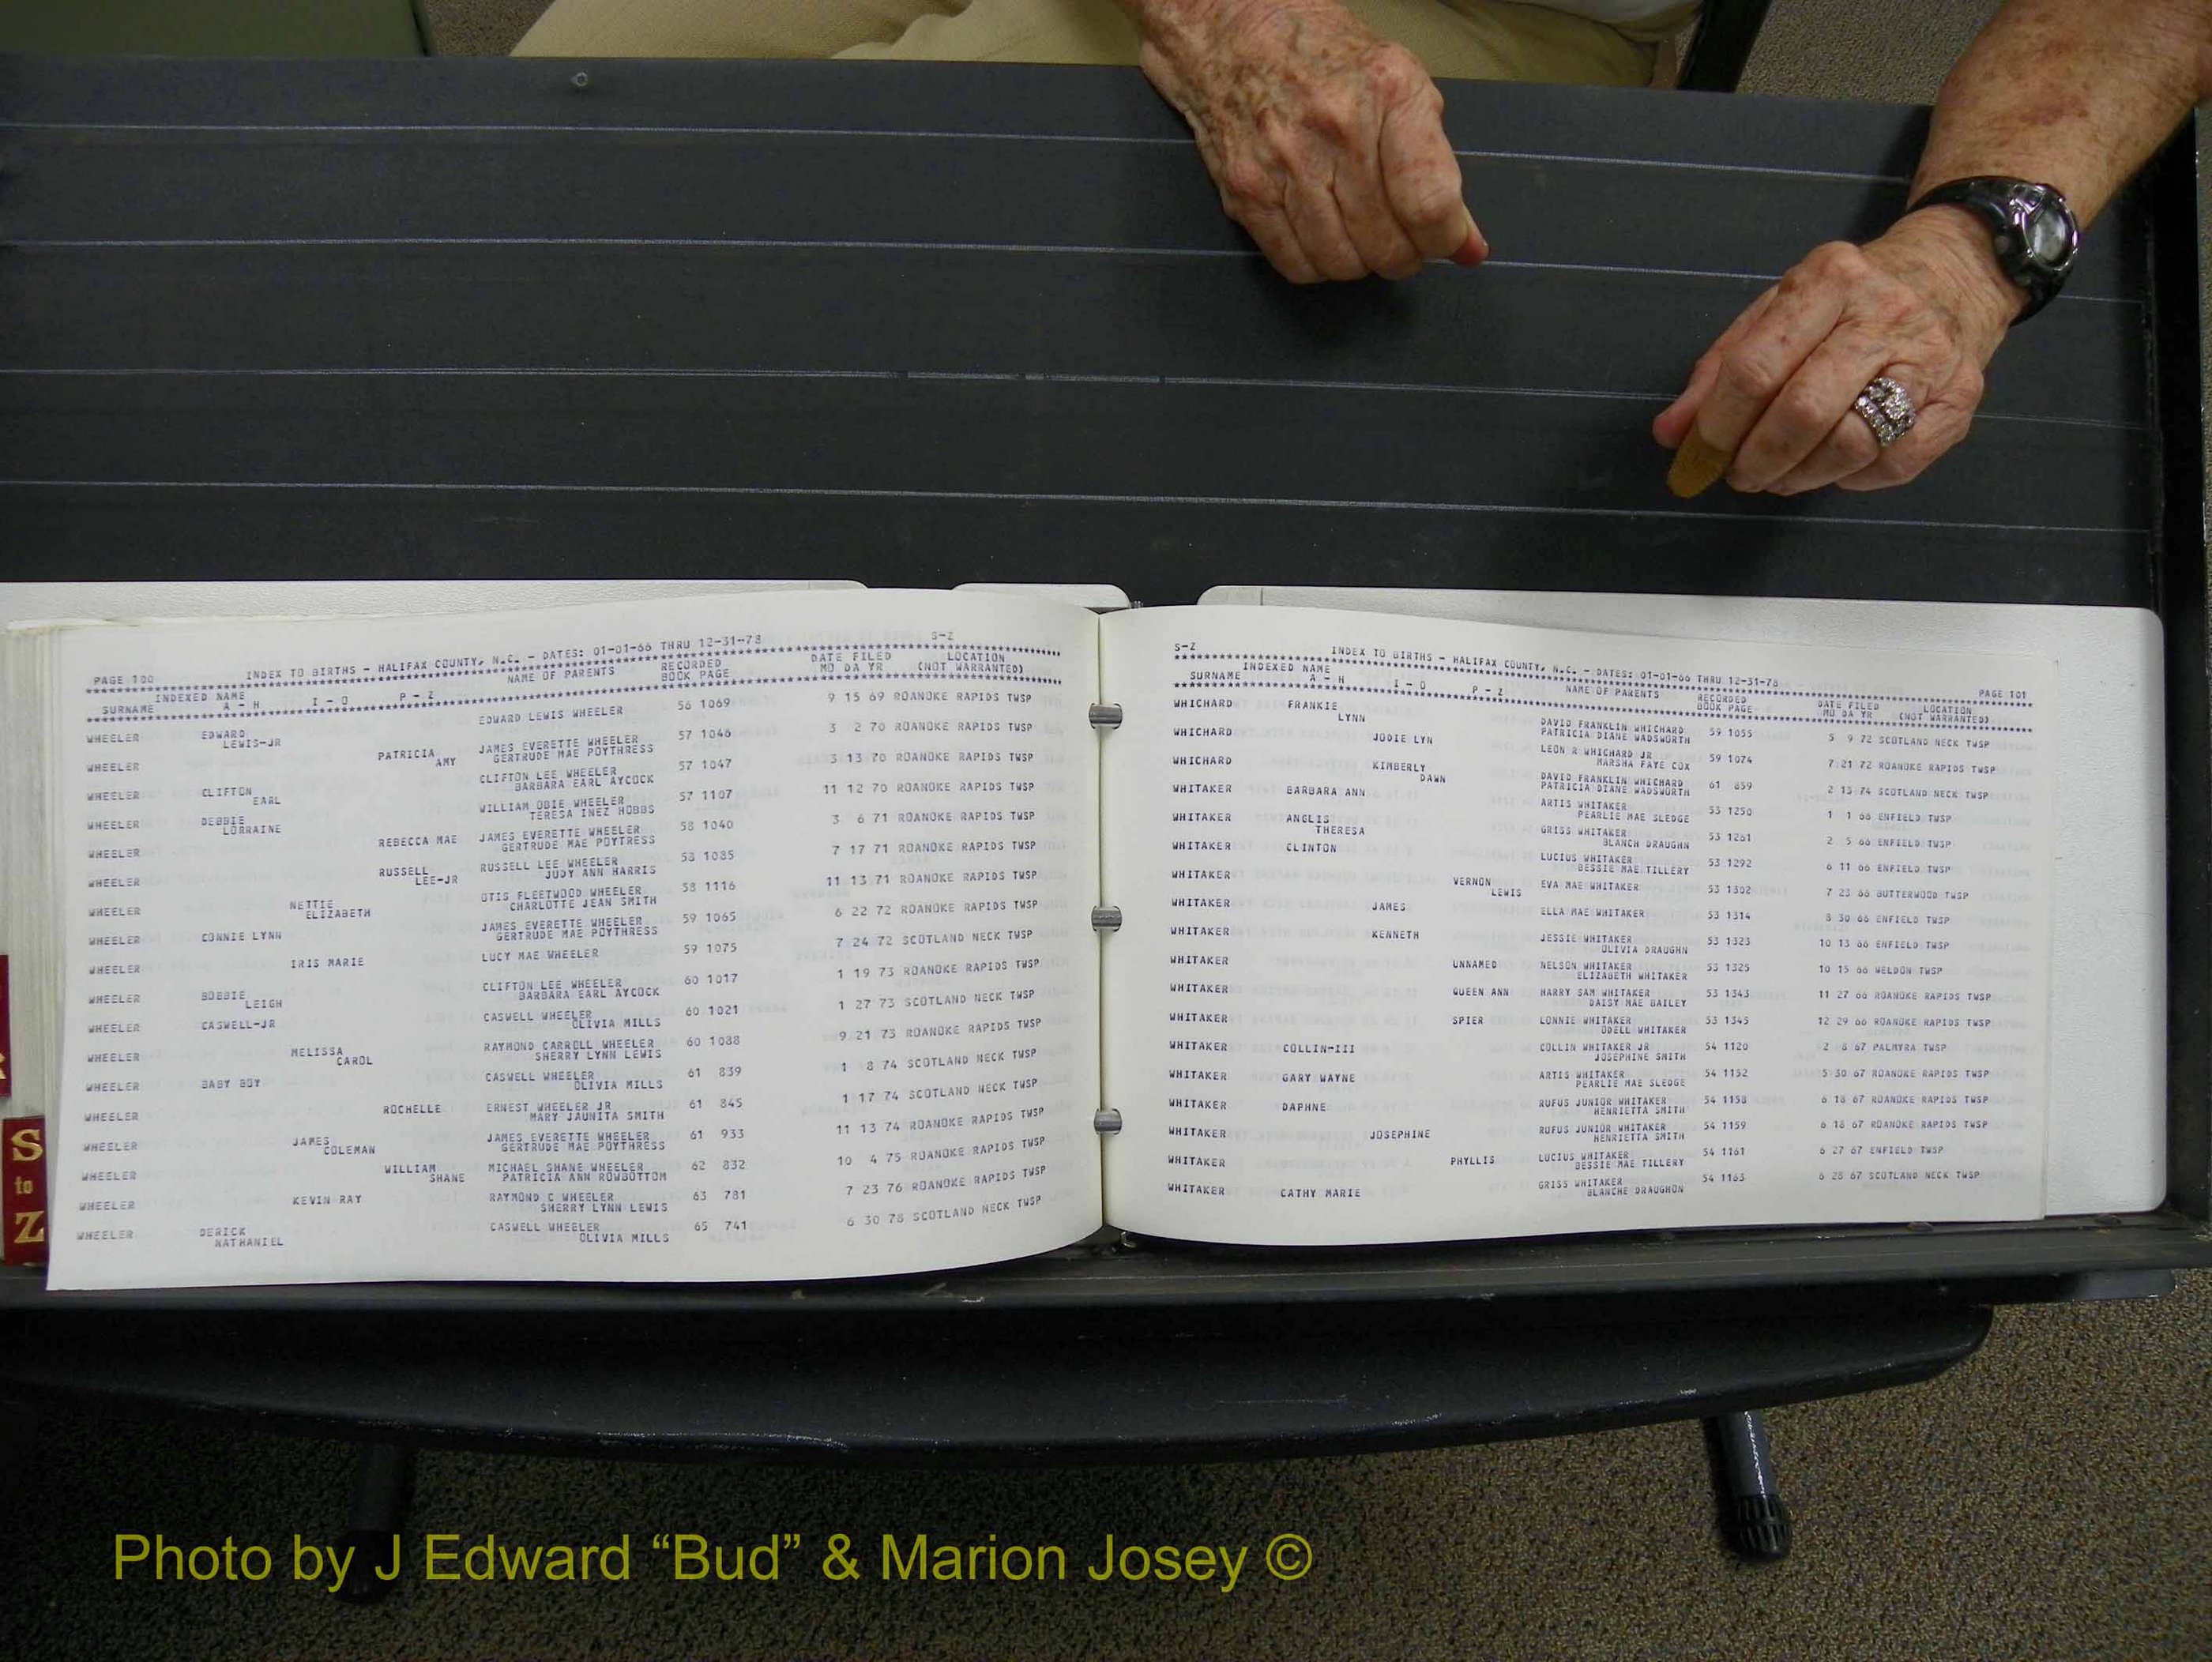 PAGE 100 INDEX TO BIRTHS - HALIFAX COUNTY, N.C. - DATES: 01-01-66 THRU 12-31-78 S-Z
INDEXED NAME NAME OF PARENTS RECORDED DATE FILED LOCATION
SURNAME A - H I - O P - Z BOOK PAGE MO DA YR (NOT WARRANTED)
WHEELER EDWARD EDWARD LEWIS WHEELER 56 1069 9 15 69 ROANOKE RAPIDS TWSP
LEWIS-JR
WHEELER PATRICIA JAMES EVERETTE WHEELER 57 1046 3 2 70 ROANOKE RAPIDS TWSP
AMY GERTRUDE MAE POYTHRESS
WHEELER CLIFTON CLIFTON LEE WHEELER 57 1047 3 13 70 ROANOKE RAPIDS TWSP
EARL BARBARA EARL AYCOCK
WHEELER DEBBIE WILLIAM OBIE WHEELER 57 1107 11 12 70 ROANOKE RAPIDS TWSP
LORRAINE TERESA INEZ HOBBS
WHEELER REBECCA MAE JAMES EVERETTE WHEELER 58 1040 3 6 71 ROANOKE RAPIDS TWSP
GERTRUDE MAE POYTRESS
WHEELER RUSSELL RUSSELL LEE WHEELER 58 1085 7 17 71 ROANOKE RAPIDS TWSP
LEE-JR JUDY ANN HARRIS
WHEELER NETTIE OTIS FLEETWOOD WHEELER 58 1116 11 13 71 ROANOKE RAPIDS TWSP
ELIZABETH CHARLOTTE JEAN SMITH
WHEELER CONNIE LYNN JAMES EVERETTE WHEELER 59 1065 6 22 72 ROANOKE RAPIDS TWSP
GERTRUDE MAE POYTHRESS
WHEELER IRIS MARIE LUCY MAE WHEELER 59 1075 7 24 72 SCOTLAND NECK TWSP
WHEELER BOBBIE CLIFTON LEE WHEELER 60 1017 1 19 73 ROANOKE RAPIDS TWSP
LEIGH BARBARA EARL AYCOCK
WHEELER CASWELL-JR CASWELL WHEELER 60 1021 1 27 73 SCOTLAND NECK TWSP
OLIVIA MILLS
WHEELER MELISSA RAYMOND CARROLL WHEELER 60 1088 9 21 73 ROANOKE RAPIDS TWSP
CAROL SHERRY LYNN LEWIS
WHEELER BABY BOY CASWELL WHEELER 61 839 1 8 74 SCOTLAND NECK TWSP
OLIVIA MILLS
WHEELER ROCHELLE ERNEST WHEELER JR 61 845 1 17 74 SCOTLAND NECK TWSP
MARY JAUNITA SMITH
WHEELER JAMES JAMES EVERETTE WHEELER 61 933 11 13 74 ROANOKE RAPIDS TWSP
COLEMAN GERTRUDE MAE POYTHRESS
WHEELER WILLIAM MICHAEL SHANE WHEELER 62 832 10 4 75 ROANOKE RAPIDS TWSP
SHANE PATRICIA ANN ROWBOTTOM
WHEELER KEVIN RAY RAYMOND C WHEELER 63 781 7 23 76 ROANOKE RAPIDS TWSP
SHERRY LYNN LEWIS
WHEELER DERICK CASWELL WHEELER 65 741 6 30 78 SCOTLAND NECK TWSP
NATHANIEL OLIVIA MILLS
S-Z INDEX TO BIRTHS - HALIFAX COUNTY, N.C. - DATES: 01-01-66 THRU 12-31-78 PAGE 101
INDEXED NAME NAME OF PARENTS RECORDED DATE FILED LOCATION
SURNAME A - H I - O P - Z BOOK PAGE MO DA YR (NOT WARRANTED)
WHICHARD FRANKIE DAVID FRANKLIN WHICHARD 59 1055 5 9 72 SCOTLAND NECK TWSP
LYNN PATRICIA DIANE WADSWORTH
WHICHARD JODIE LYN LEON R WHICHARD JR 59 1074 7 21 72 ROANOKE RAPIDS TWSP
MARSHA FAYE COX
WHICHARD KIMBERLY DAVID FRANKLIN WHICHARD 61 859 2 13 74 SCOTLAND NECK TWSP
DAWN PATRICIA DIANE WADSWORTH
WHITAKER BARBARA ANN ARTIS WHITAKER 53 1250 1 1 66 ENFIELD TWSP
PEARLIE MAE SLEDGE
WHITAKER ANGLIS GRISS WHITAKER 53 1261 2 5 66 ENFIELD TWSP
THERESA BLANCH DRAUGHN
WHITAKER CLINTON LUCIUS WHITAKER 53 1292 6 11 66 ENFIELD TWSP
BESSIE MAE TILLERY
WHITAKER VERNON EVA MAE WHITAKER 53 1302 7 23 66 BUTTERWOOD TWSP
LEWIS
WHITAKER JAMES ELLA MAE WHITAKER 53 1314 8 30 66 ENFIELD TWSP
WHITAKER KENNETH JESSIE WHITAKER 53 1323 10 13 66 ENFIELD TWSP
OLIVIA DRAUGHN
WHITAKER UNNAMED NELSON WHITAKER 53 1325 10 15 66 WELDON TWSP
ELIZABETH WHITAKER
WHITAKER QUEEN ANN HARRY SAM WHITAKER 53 1343 11 27 66 ROANOKE RAPIDS TWSP
DAISY MAE BAILEY
WHITAKER SPIER LONNIE WHITAKER 53 1345 12 29 66 ROANOKE RAPIDS TWSP
ODELL WHITAKER
WHITAKER COLLIN-III COLLIN WHITAKER JR 54 1120 2 8 67 PALMYRA TWSP
JOSEPHINE SMITH
WHITAKER GARY WAYNE ARTIS WHITAKER 54 1152 5 30 67 ROANOKE RAPIDS TWSP
PEARLIE MAE SLEDGE
WHITAKER DAPHNE RUFUS JUNIOR WHITAKER 54 1158 6 18 67 ROANOKE RAPIDS TWSP
HENRIETTA SMITH
WHITAKER JOSEPHINE RUFUS JUNIOR WHITAKER 54 1159 6 18 67 ROANOKE RAPIDS TWSP
HENRIETTA SMITH
WHITAKER PHYLLIS LUCIUS WHITAKER 54 1161 6 27 67 ENFIELD TWSP
BESSIE MAE TILLERY
WHITAKER CATHY MARIE GRISS WHITAKER 54 1163 6 28 67 SCOTLAND NECK TWSP
BLANCHE DRAUGHON
S
to
Z
Photo by J Edward “Bud” & Marion Josey ©